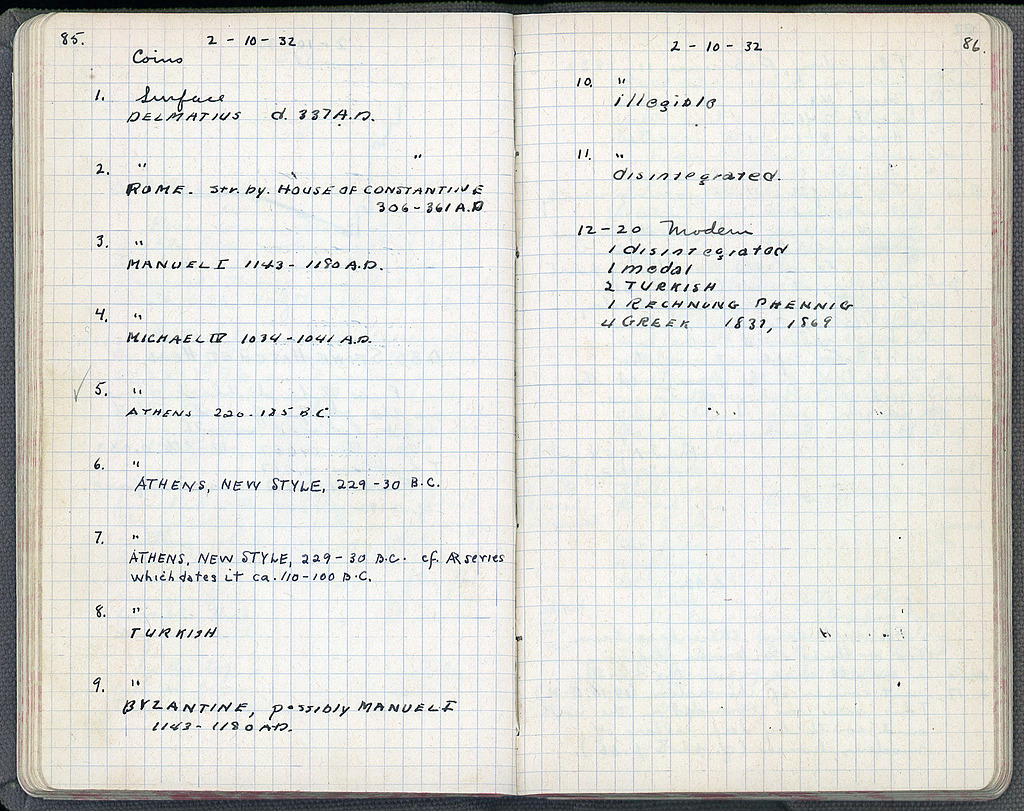 85.
2 - 10 - 32
Coins
1. Surface
DELMATIUS d. 337 A.D.
2. " "
ROME. str. by. HOUSE OF CONSTANTINE
306 - 361 A.D
3. "
MANUEL I 1143 - 1180 A.D.
4. "
MICHAEL IV 1034 - 1041 A.D.
5. "
ATHENS 220 - 185 B.C.
6. "
ATHENS, NEW STYLE, 229 - 30 B.C.
7. "
ATHENS, NEW STYLE, 229 - 30 B.C. cf. AR series
which dates it ca. 110 - 100 B.C.
8. "
TURKISH
9. "
BYZANTINE, possibly MANUEL I
1143 - 1180 A.D.
2 - 10 - 32
86.
10. "
illegible
11. "
disintegrated.
12 - 20 Modern
1 disintegrated
1 medal
2 TURKISH
1 RECHNUNG PHENNIG
4 GREEK 1869